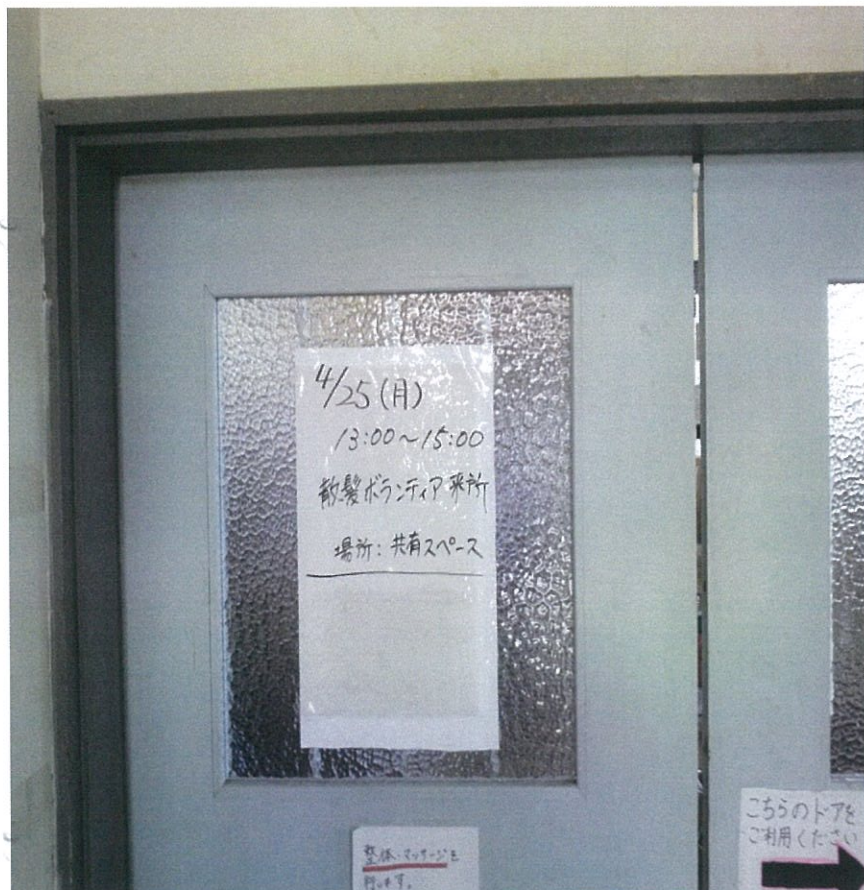 4/25(月)
13:00~15:00
散髪ボランティア来所
場所:共有スペース
整体・マッサージを
行います。
こちらのドアを
ご利用ください